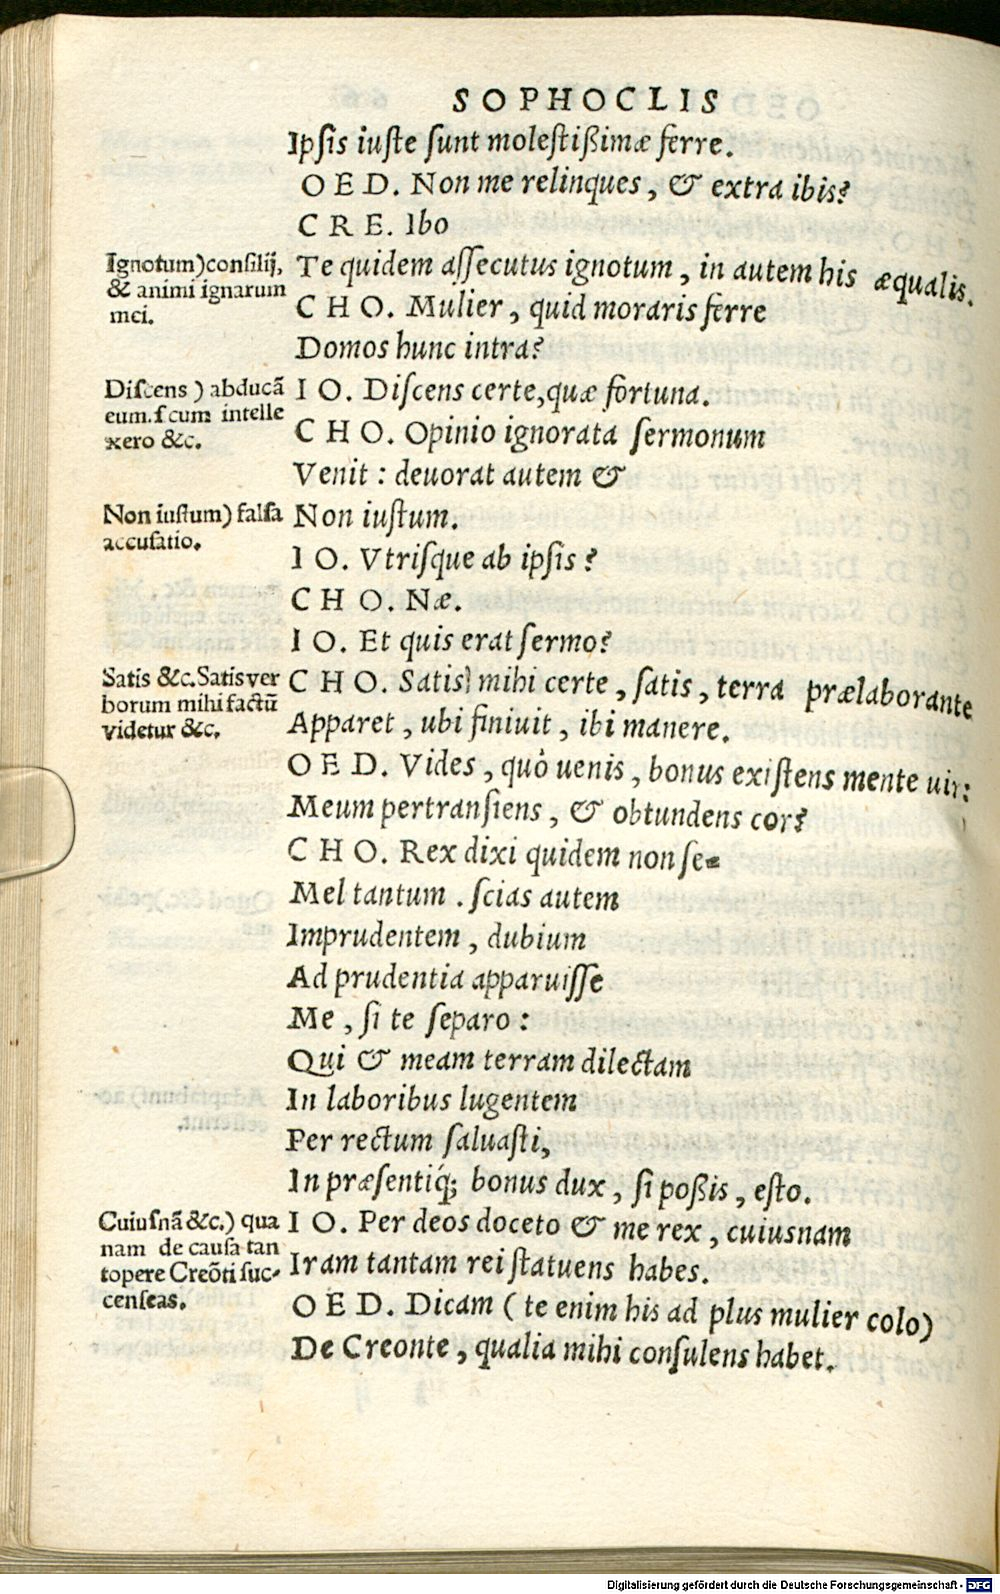 SOPHOCLIS
Ipſis iuſte ſunt moleſtißimæ ferre.
OED. Non me relinques, & extra ibis?
CRE. Ibo
Ignotum) conſilij,
& animi ignarum
mei.
Te quidem aſſecutus ignotum, in autem his æqualis.
CHO. Mulier, quid moraris ferre
Domos hunc intra?
Diſcens) abducã
eum. ſ cum intelle
xero &c.
IO. Diſcens certe, quæ fortuna.
CHO. Opinio ignorata ſermonum
Venit: deuorat autem &
Non iuſtum) falſa
accuſatio.
Non iuſtum.
IO. Vtriſque ab ipſis?
CHO. Næ.
IO. Et quis erat ſermo?
Satis &c. Satis ver
borum mihi factũ
videtur &c.
CHO. Satis) mihi certe, ſatis, terra prælaborante
Apparet, ubi finiuit, ibi manere.
OED. Vides, quò uenis, bonus exiſtens mente uir:
Meum pertranſiens, & obtundens cor?
CHO. Rex dixi quidem non ſe-
Mel tantum. ſcias autem
Imprudentem, dubium
Ad prudentia apparuiſſe
Me, ſi te ſeparo:
Qui & meam terram dilectam
In laboribus lugentem
Per rectum ſaluaſti,
In præſentiq́; bonus dux, ſi poßis, eſto.
Cuiuſnã &c.) qua
nam de cauſa tan
topere Creõti ſuc-
cenſeas.
IO. Per deos doceto & me rex, cuiusnam
Iram tantam rei ſtatuens habes.
OED. Dicam (te enim his ad plus mulier colo)
De Creonte, qualia mihi conſulens habet.
Digitalisierung gefördert durch die Deutsche Forschungsgemeinschaft - DFG